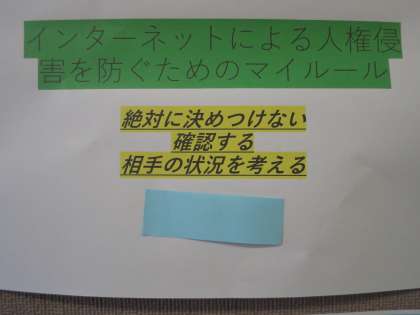 インターネットによる人権侵
害を防ぐためのマイルール
絶対に決めつけない
確認する
相手の状況を考える